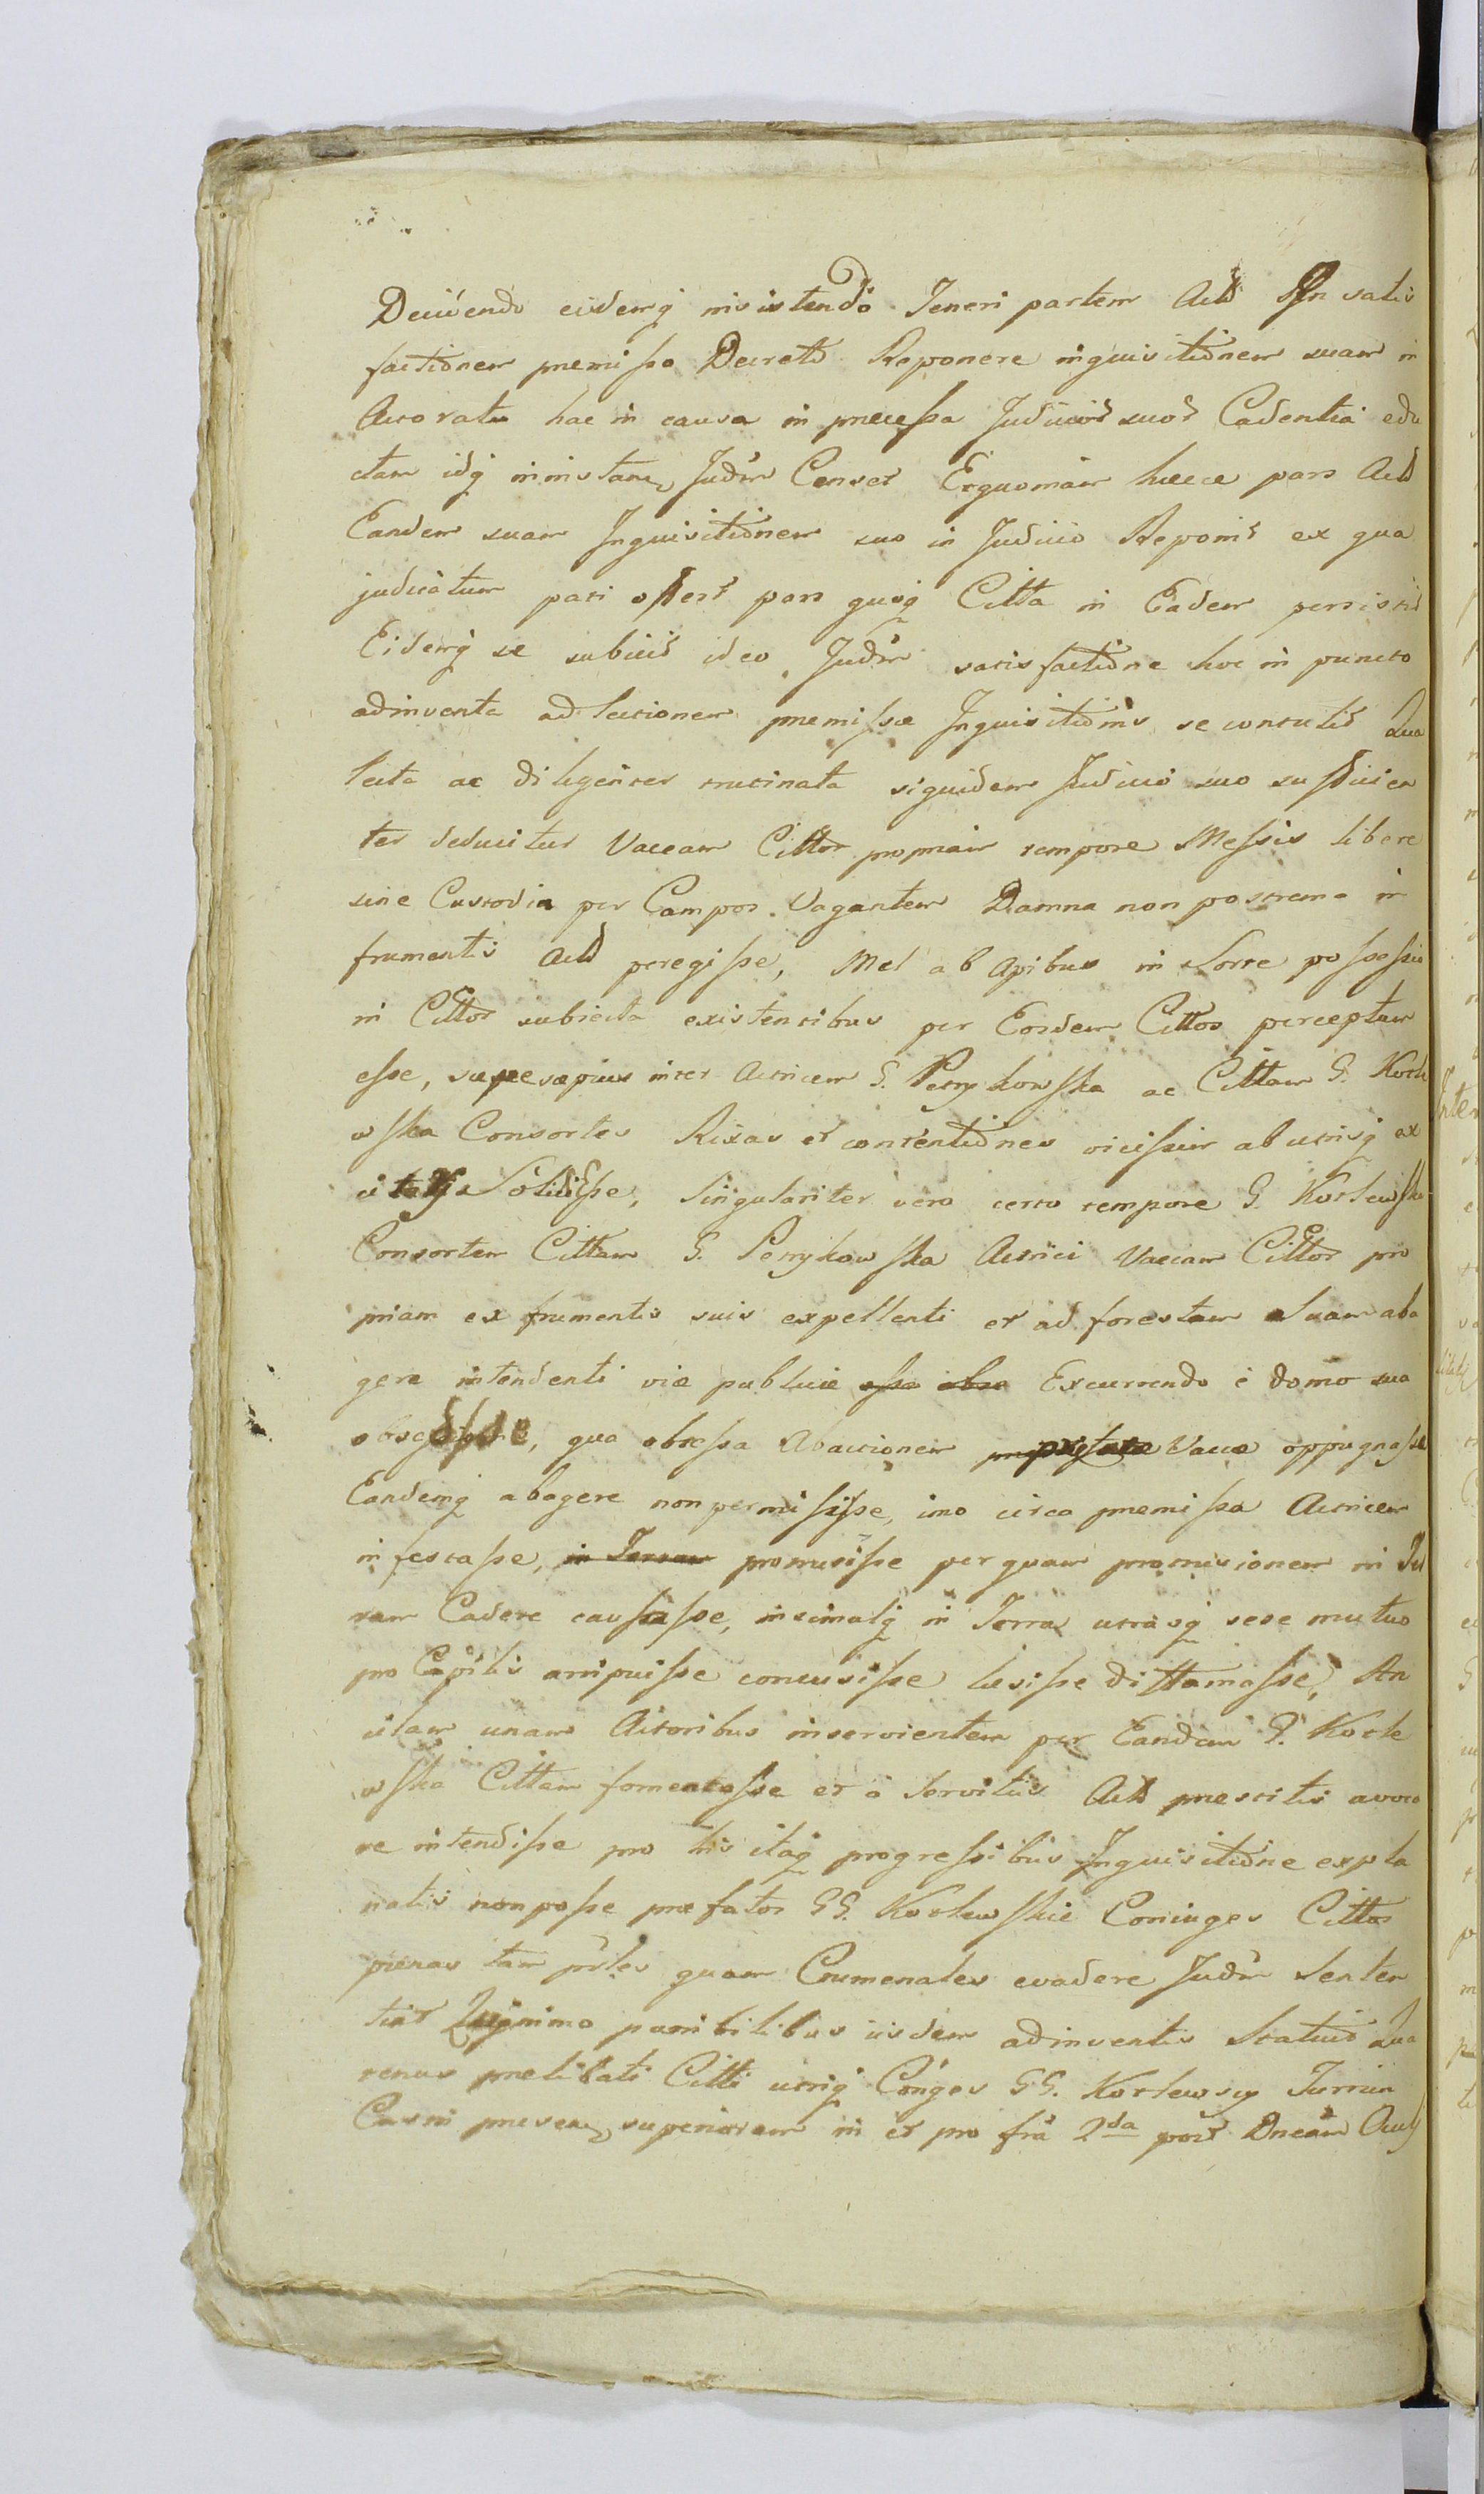 Decidendo eidemq insistendo Teneri partem Actt In satis
factionem premisso Decreto Reponere inquisitionem suam in
Accoratu hac in causa in precessa Judicior suor Cadentia edu
ctam idq ininstan Judm Censet Exquoniam hecce pars Actt
Eandem suam Inquisitionem suo in Judicio Reponit ex qua
judicatum pati offert pars quoq Citta in Eadem persistit
Eidemq se subiicit ideo Judm satisfactione hoc in puncto
adinventa ad lectionem premissæ Inquisitionis se contulit Qua
lecta ac diligenter trutinata siquidem Judicio suo sufficien
ter deducitur Vaccam Cittor propriam tempore Messis libere
sine Custodia per Campos Vagantem Damna non postrema in
frumentis Actt peregisse, Mel ab Apibus in Sorte possessio
in Cittor subiecta existentibus per Eosdem Cittos perceptum
esse, sæpesæpius inter Actricem G. Petrykowska ac Cittam G. Kozle
wska Consortes Rixas et contentiones vicissim ab utrisq ex
citatas Solidisse, Singulariter vero certo tempore G. Kozlewska
Consortem Cittam G. Petrykowska Actrici Vaccam Cittor pro
priam ex frumentis suis expellenti et ad forestam Suam aba
gere intendenti viæ publicæ Excurrendo è domo sua
obsedisse, qua obsessa Abactionem Vaccæ oppugnasse
Eandemq abagere non permisisse, imo circa premissa Actricem
infestasse, in Terram promisisse per quam promisionem in Ter
ram Cadere caussasse, insimulq in Terra utrasq sese mutuo
pro Capitis arripuisse concusisse læsisse diffamasse, An
cilam unam Actoribus inservientem per Eandem G. Kozle
wska Cittam fomentasse et à Servitiis Actt prestitis avoca
re intendisse pro his itaq progressibus Inquisitione expla
natis non posse præfatos GG. Kozlewskie Coniuges Cittos
pænas tam prles quam Crumenales evadere Judm Senten
tiat Quinimo punibilibus iisdem adinventis Statuit Qua
tenus prelibati Citti utriq Conges GG. Kozlewscy Turrim
Castri presen superiorem in et pro fra 2da post Dneam Ocul